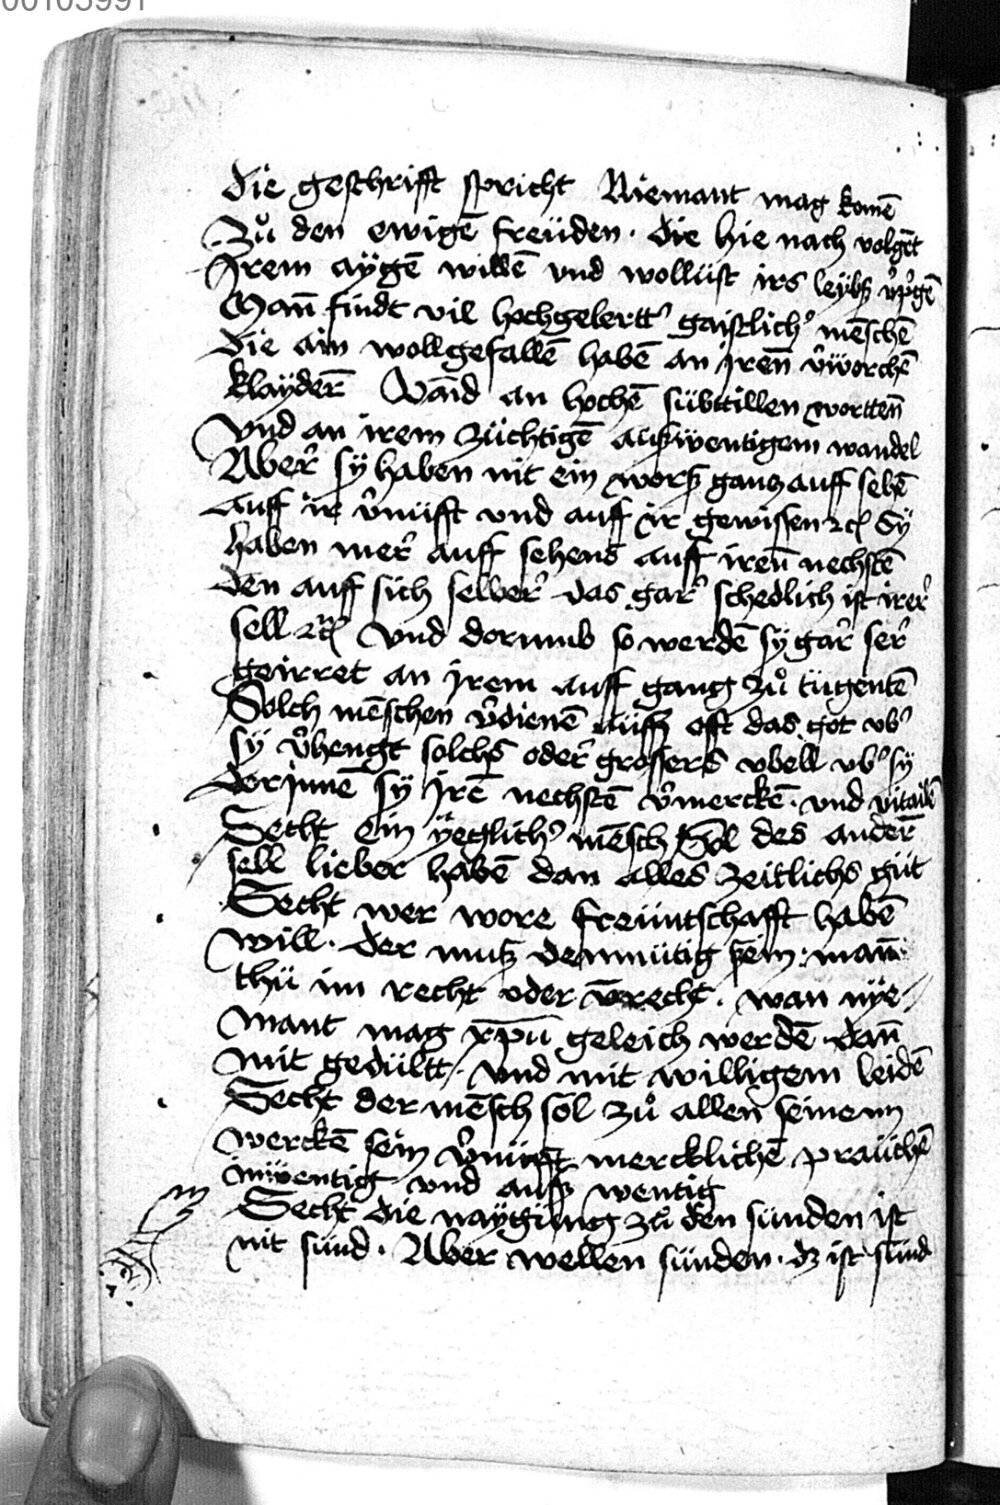 00103991
die geschrifft spricht Niemant mag komē
Zů den ewigē freüden · die hie nach volgēt
Jrem aygē willē vnd wollüst irs leybß
Man̄ findt vil hochgelertt' gaistlich' mēschē
die ain wollgefallē habē an jren̄
klayder̄ Vnd an hochē subttillen wortten̄
Vnd an irem züchtigē außwentigem wandel
Aber sÿ haben nit ein gantz auff sehē
auff ir v̉nüfft vnd auff ir gewissen ꝛc Sÿ
haben mer auff sehens auff iren̄ nechstē
den auff sich selber das gar schedlich ist irer
sell ꝛc Vnd dorumb so werdē sÿ gar ser
geirret an jrem auff gang zů tügentē
Solch mēschen v̉dienē oft das got vb'
sÿ v̉hengt solchs oder grossers vbell vb' sÿ
dorjnnē sÿ jrē nechstē v̉merckē · vnd
Secht Ein ÿeglich' mēsch Sol des ander̄
sell lieber habē dan alles zeitlichs güt
Secht wer wore freüntschafft habē
will · der muß demmütig sein · man̄
thü im recht oder v̄recht · wan nÿe
mant mag xp̄u geleich werdē dan̄
mit gedültt · vnd mit willigem leidē
Secht der mēsch sol zů allen seinenn
werckē sein v̉nünft mercklichē praüchē
inwentig vnd auß wentig
Secht die naygüng zů den sünden ist
nit sünd · Aber wellen sünden · dz ist sünd